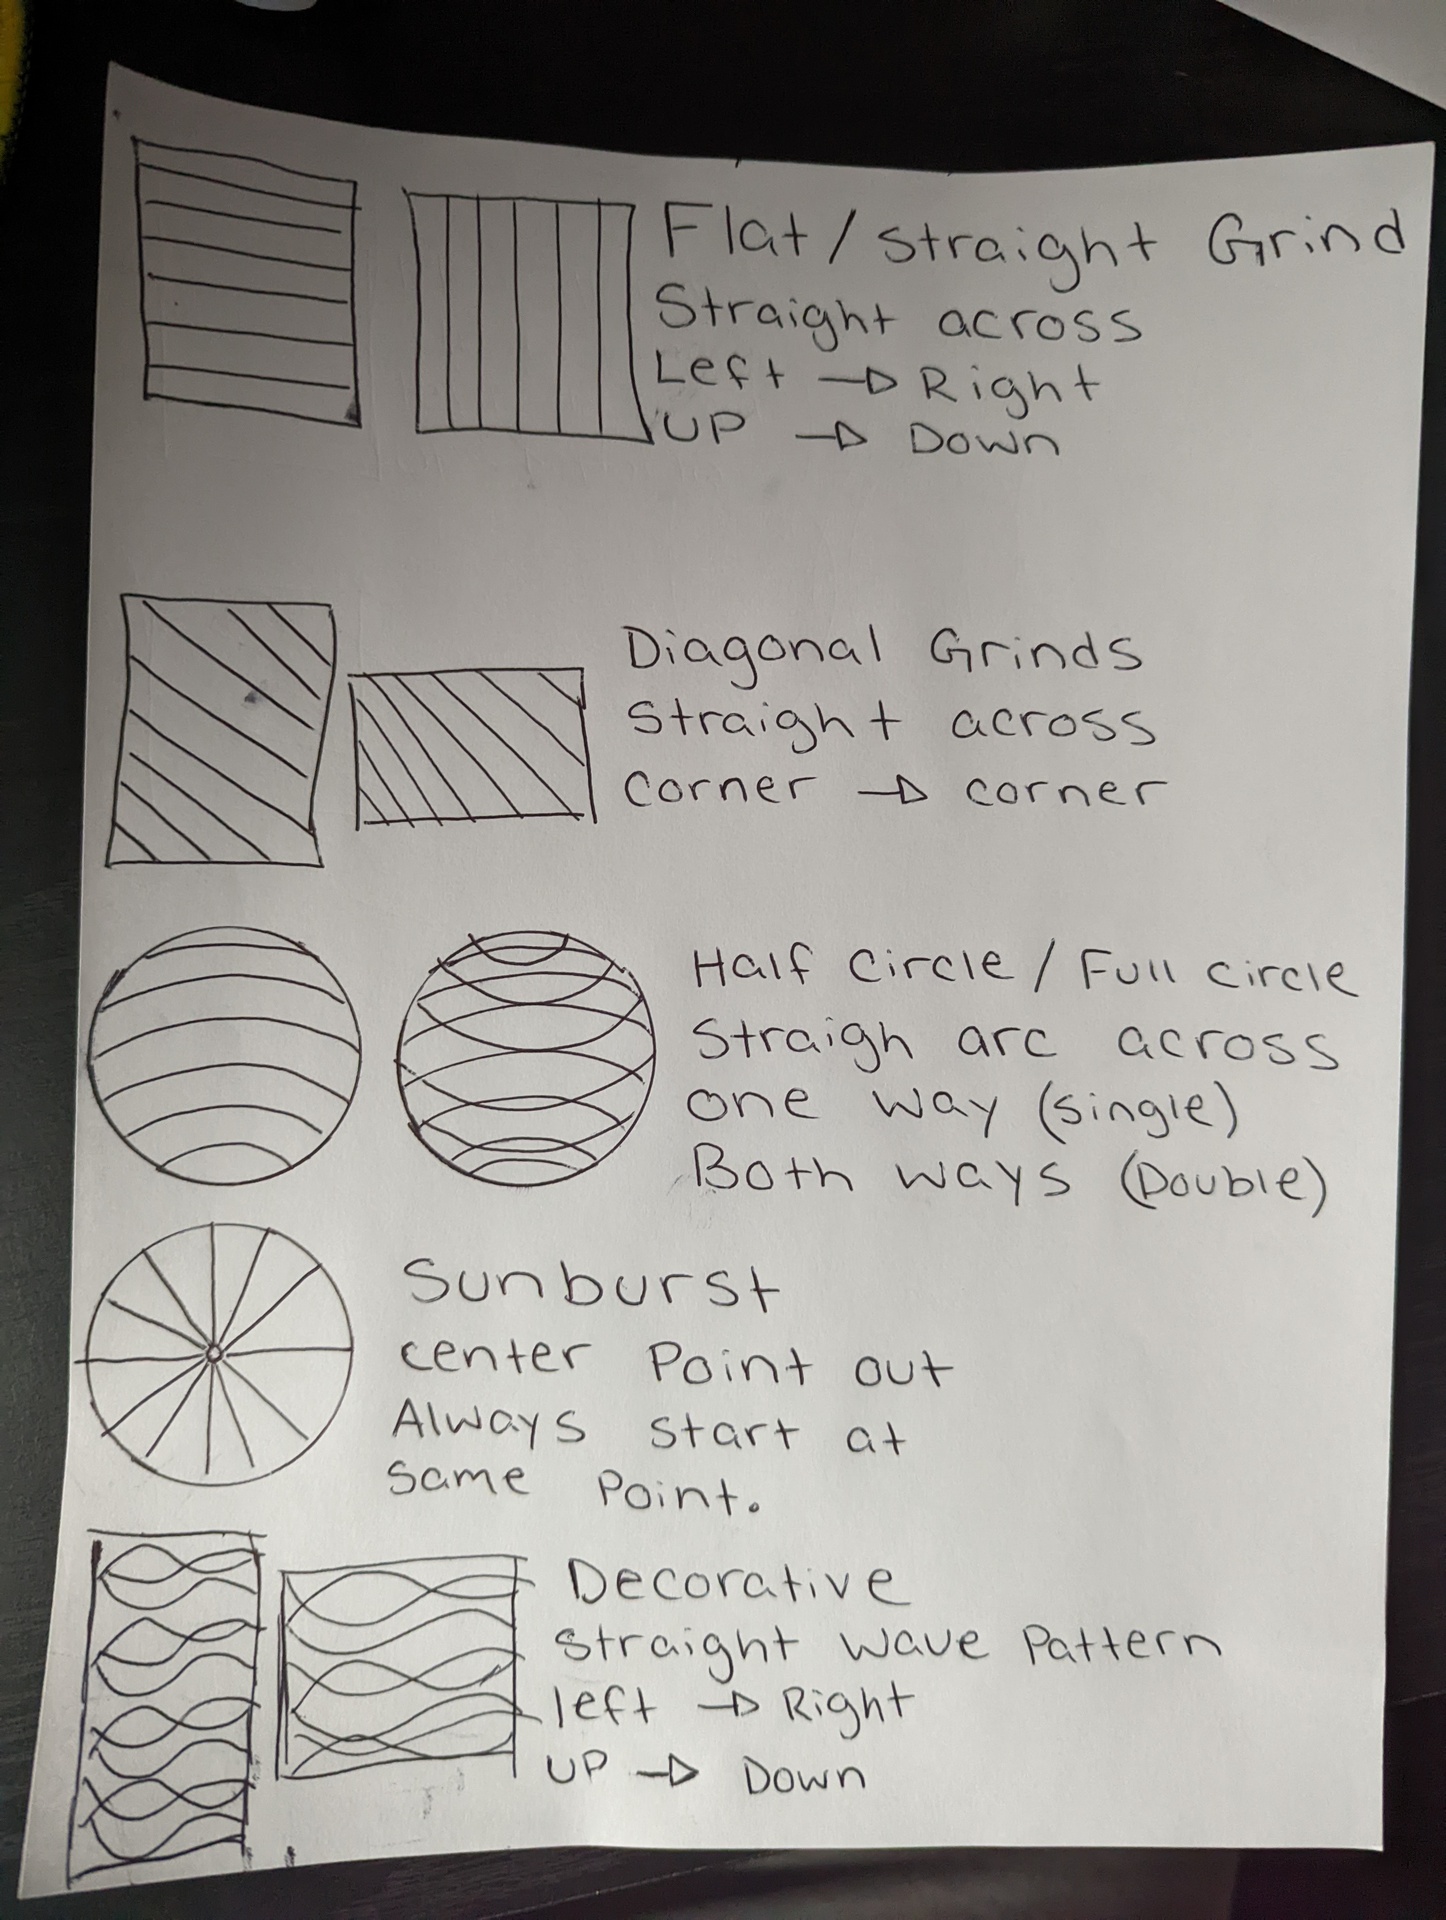 Flat / straight Grind
Straight across
Left → Right
UP → Down
Diagonal Grinds
Straight across
corner → corner
Half circle / Full circle
Straigh arc across
one way (single)
Both ways (Double)
Sunburst
center Point out
Always start at
same Point.
Decorative
Straight wave Pattern
left → Right
UP → Down